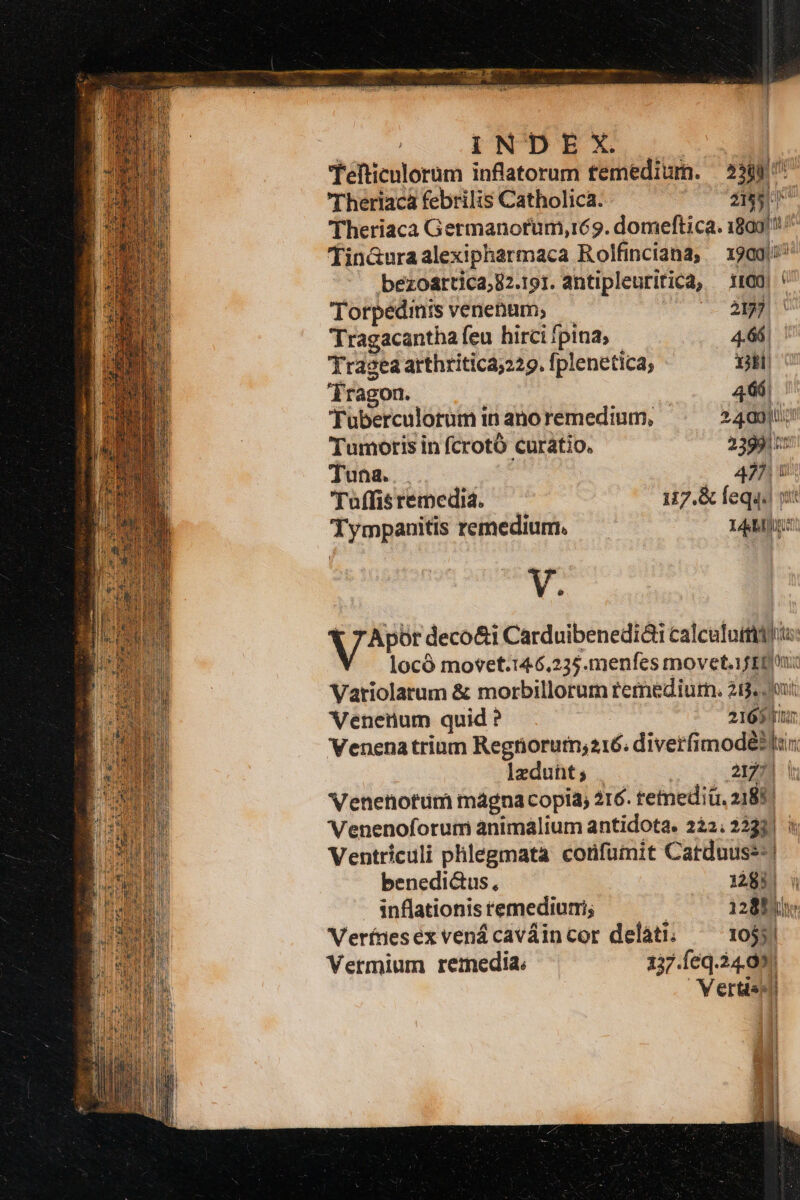 INDEX.
Teſticulorum inflatorum remedium.
Theriaca febrilis Catholica. 215
Theriaca Germanorum, 169. domeſtica. 180
Tinctura alexipharmaca Rolfinciana, 190
bezoartica, 82. 191. antipleuritica, 110
Torpedinis venenum, 217
Tragacantha ſeu hirci ſpina, 46
Tragea arthritica, 229. ſplenetica, 138
Tragon. 46
Tuberculorum in ano remedium, 240
Tumoris in ſcrotô curatio. 239
Tuna. 47
Tuſſis remedia. 117. & ſeqq.
Tympanitis remedium.
V.
VApor decocti Carduibenedicti calculum
locô movet. 146. 235. menſes movet.
Variolarum & morbillorum remedium. 213.
Venenum quid? 216
Venena trium Regnorum, 216. diverſimodè
lædunt, 217
Venenorum magna copia, 216. remediũ, 218
Venenoſorum animalium antidota. 222. 223
Ventriculi phlegmata conſumit Carduus-
benedictus. 128
inflationis remedium, 128
Vermes ex venâ cavâ in cor delati. 105
Vermium remedia. 137. ſeq. 240
Vertis-